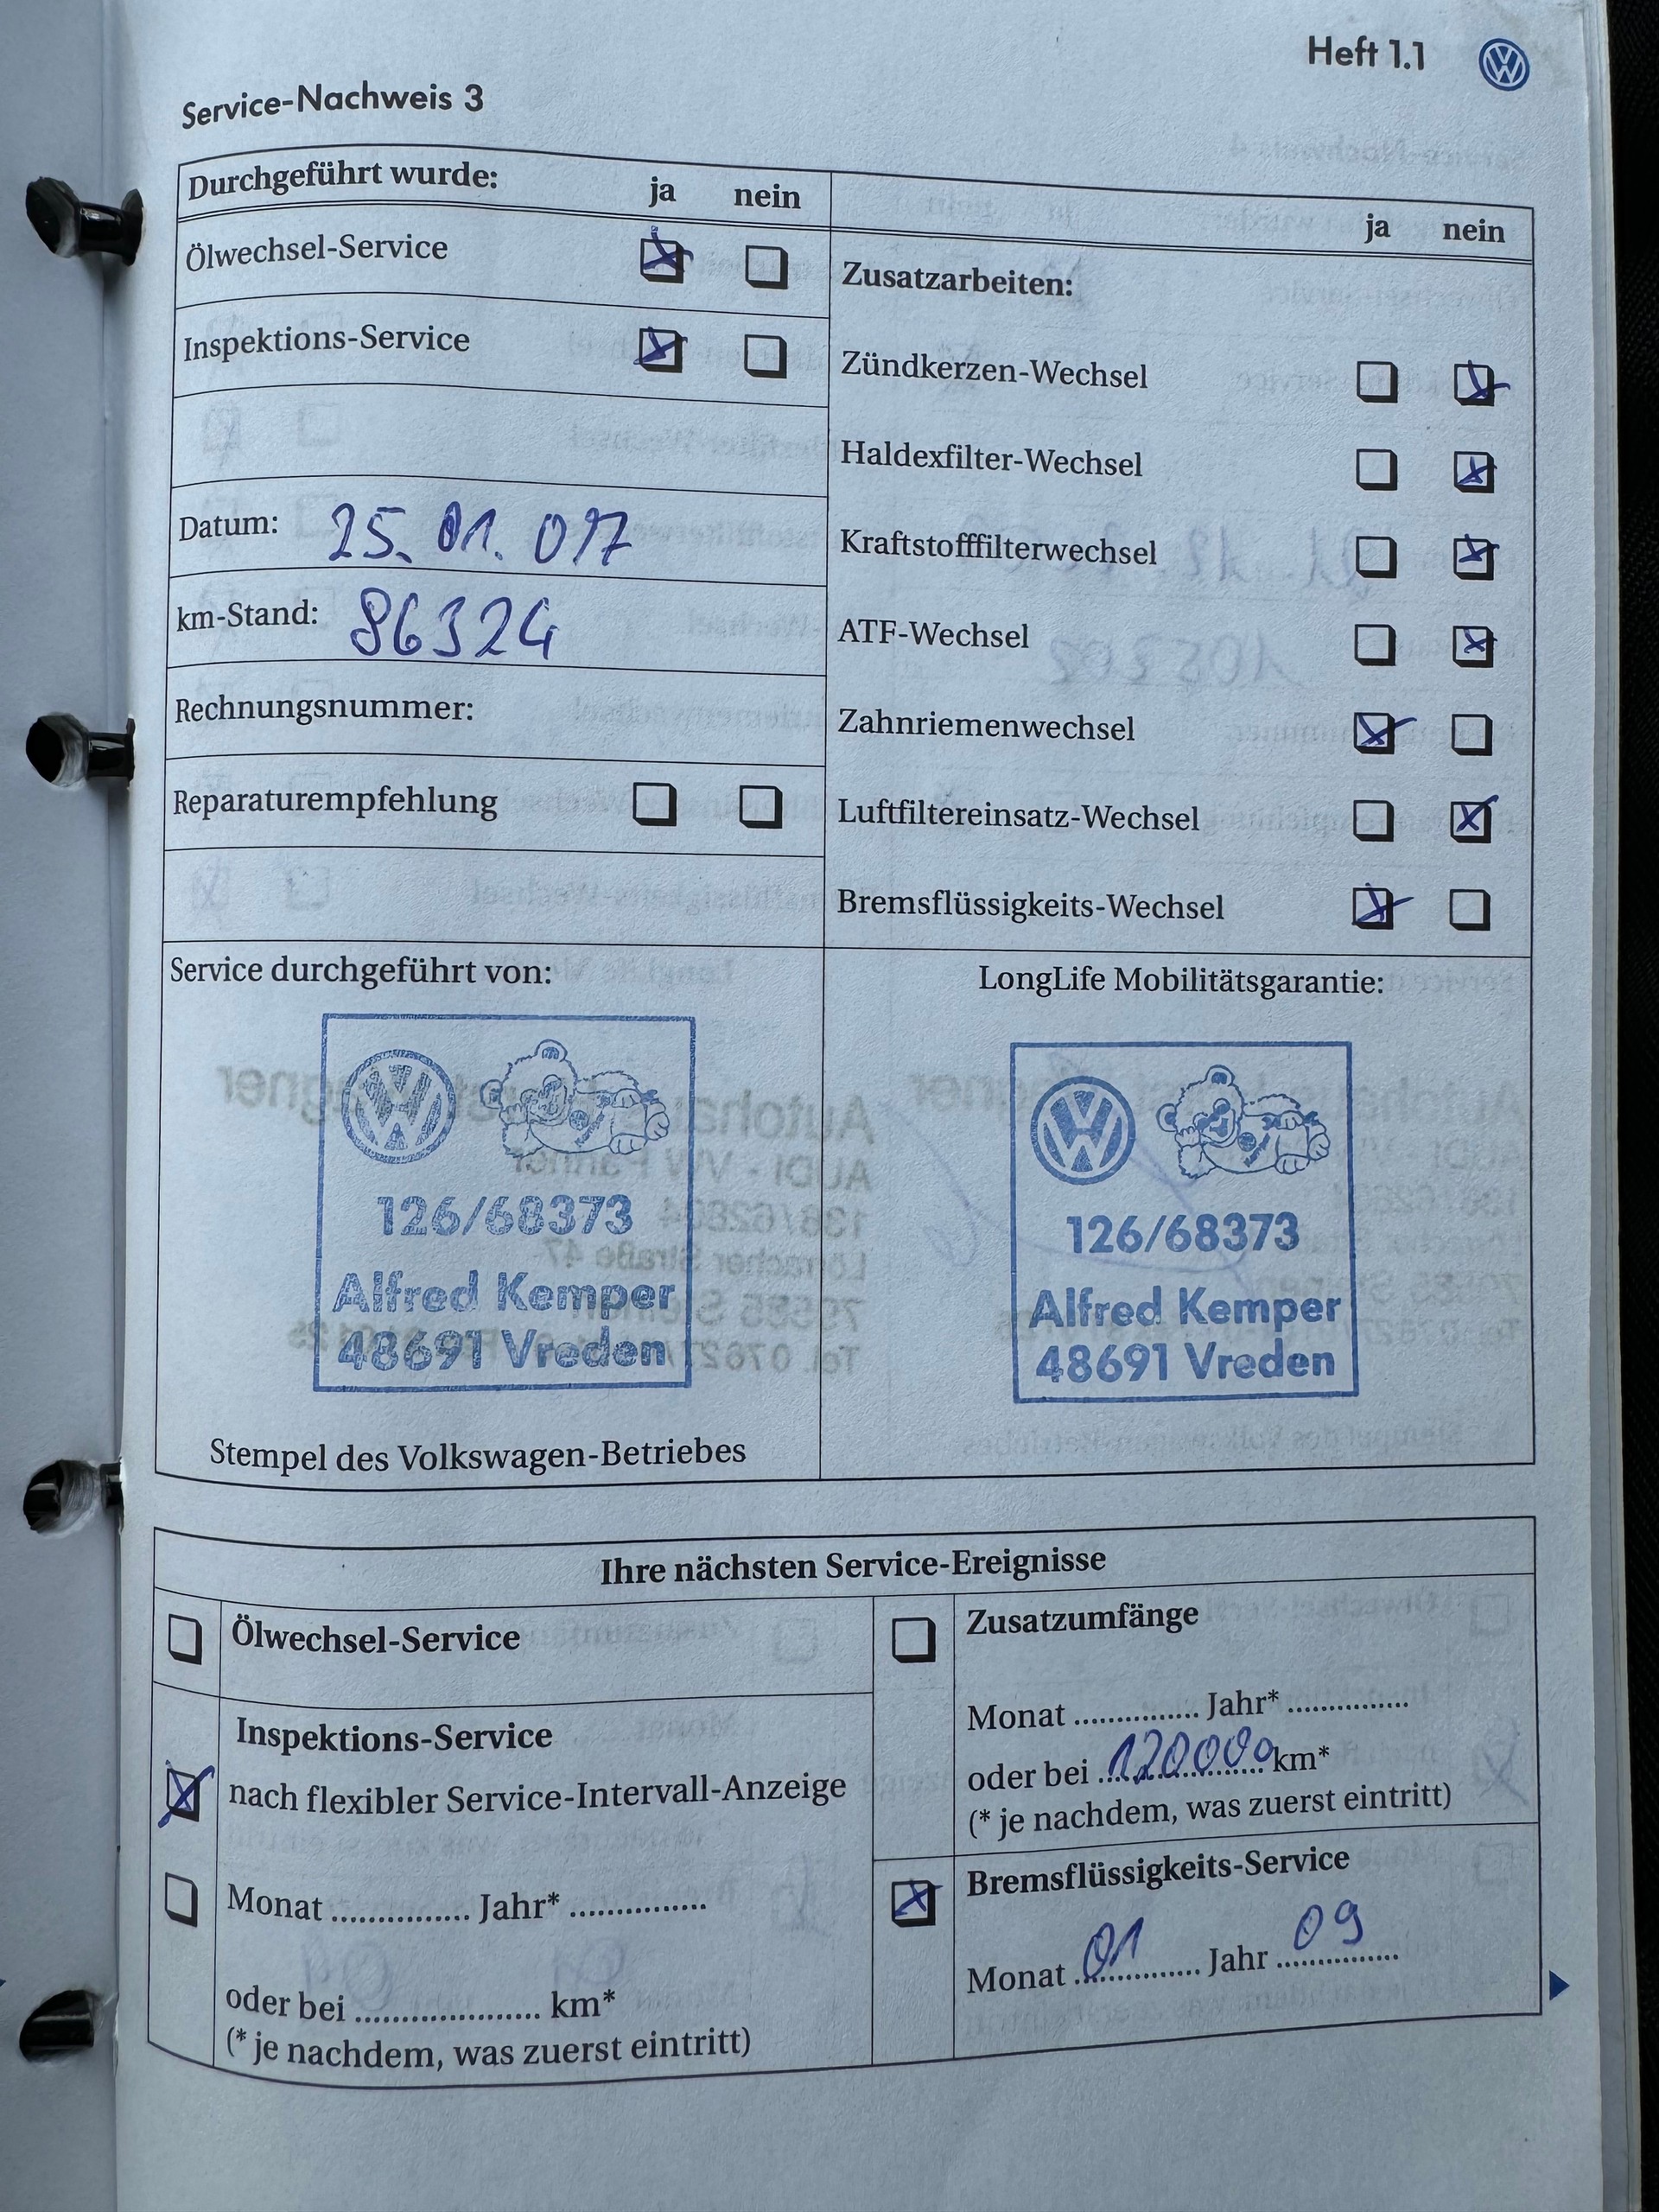 Heft 1.1
Service-Nachweis 3
Durchgeführt wurde: ja nein
Ölwechsel-Service
Inspektions-Service
Datum: 25. 01. 07
km-Stand: 86324
Rechnungsnummer:
Reparaturempfehlung
ja nein
Zusatzarbeiten:
Zündkerzen-Wechsel
Haldexfilter-Wechsel
Kraftstofffilterwechsel
ATF-Wechsel
Zahnriemenwechsel
Luftfiltereinsatz-Wechsel
Bremsflüssigkeits-Wechsel
Service durchgeführt von:
126/68373
Alfred Kemper
48691 Vreden
Stempel des Volkswagen-Betriebes
LongLife Mobilitätsgarantie:
126/68373
Alfred Kemper
48691 Vreden
Ihre nächsten Service-Ereignisse
Ölwechsel-Service
Inspektions-Service
nach flexibler Service-Intervall-Anzeige
Monat ............... Jahr* ...............
oder bei .................... km*
(* je nachdem, was zuerst eintritt)
Zusatzumfänge
Monat .............. Jahr* ..............
oder bei 120000 km*
(* je nachdem, was zuerst eintritt)
Bremsflüssigkeits-Service
Monat 01 Jahr 09